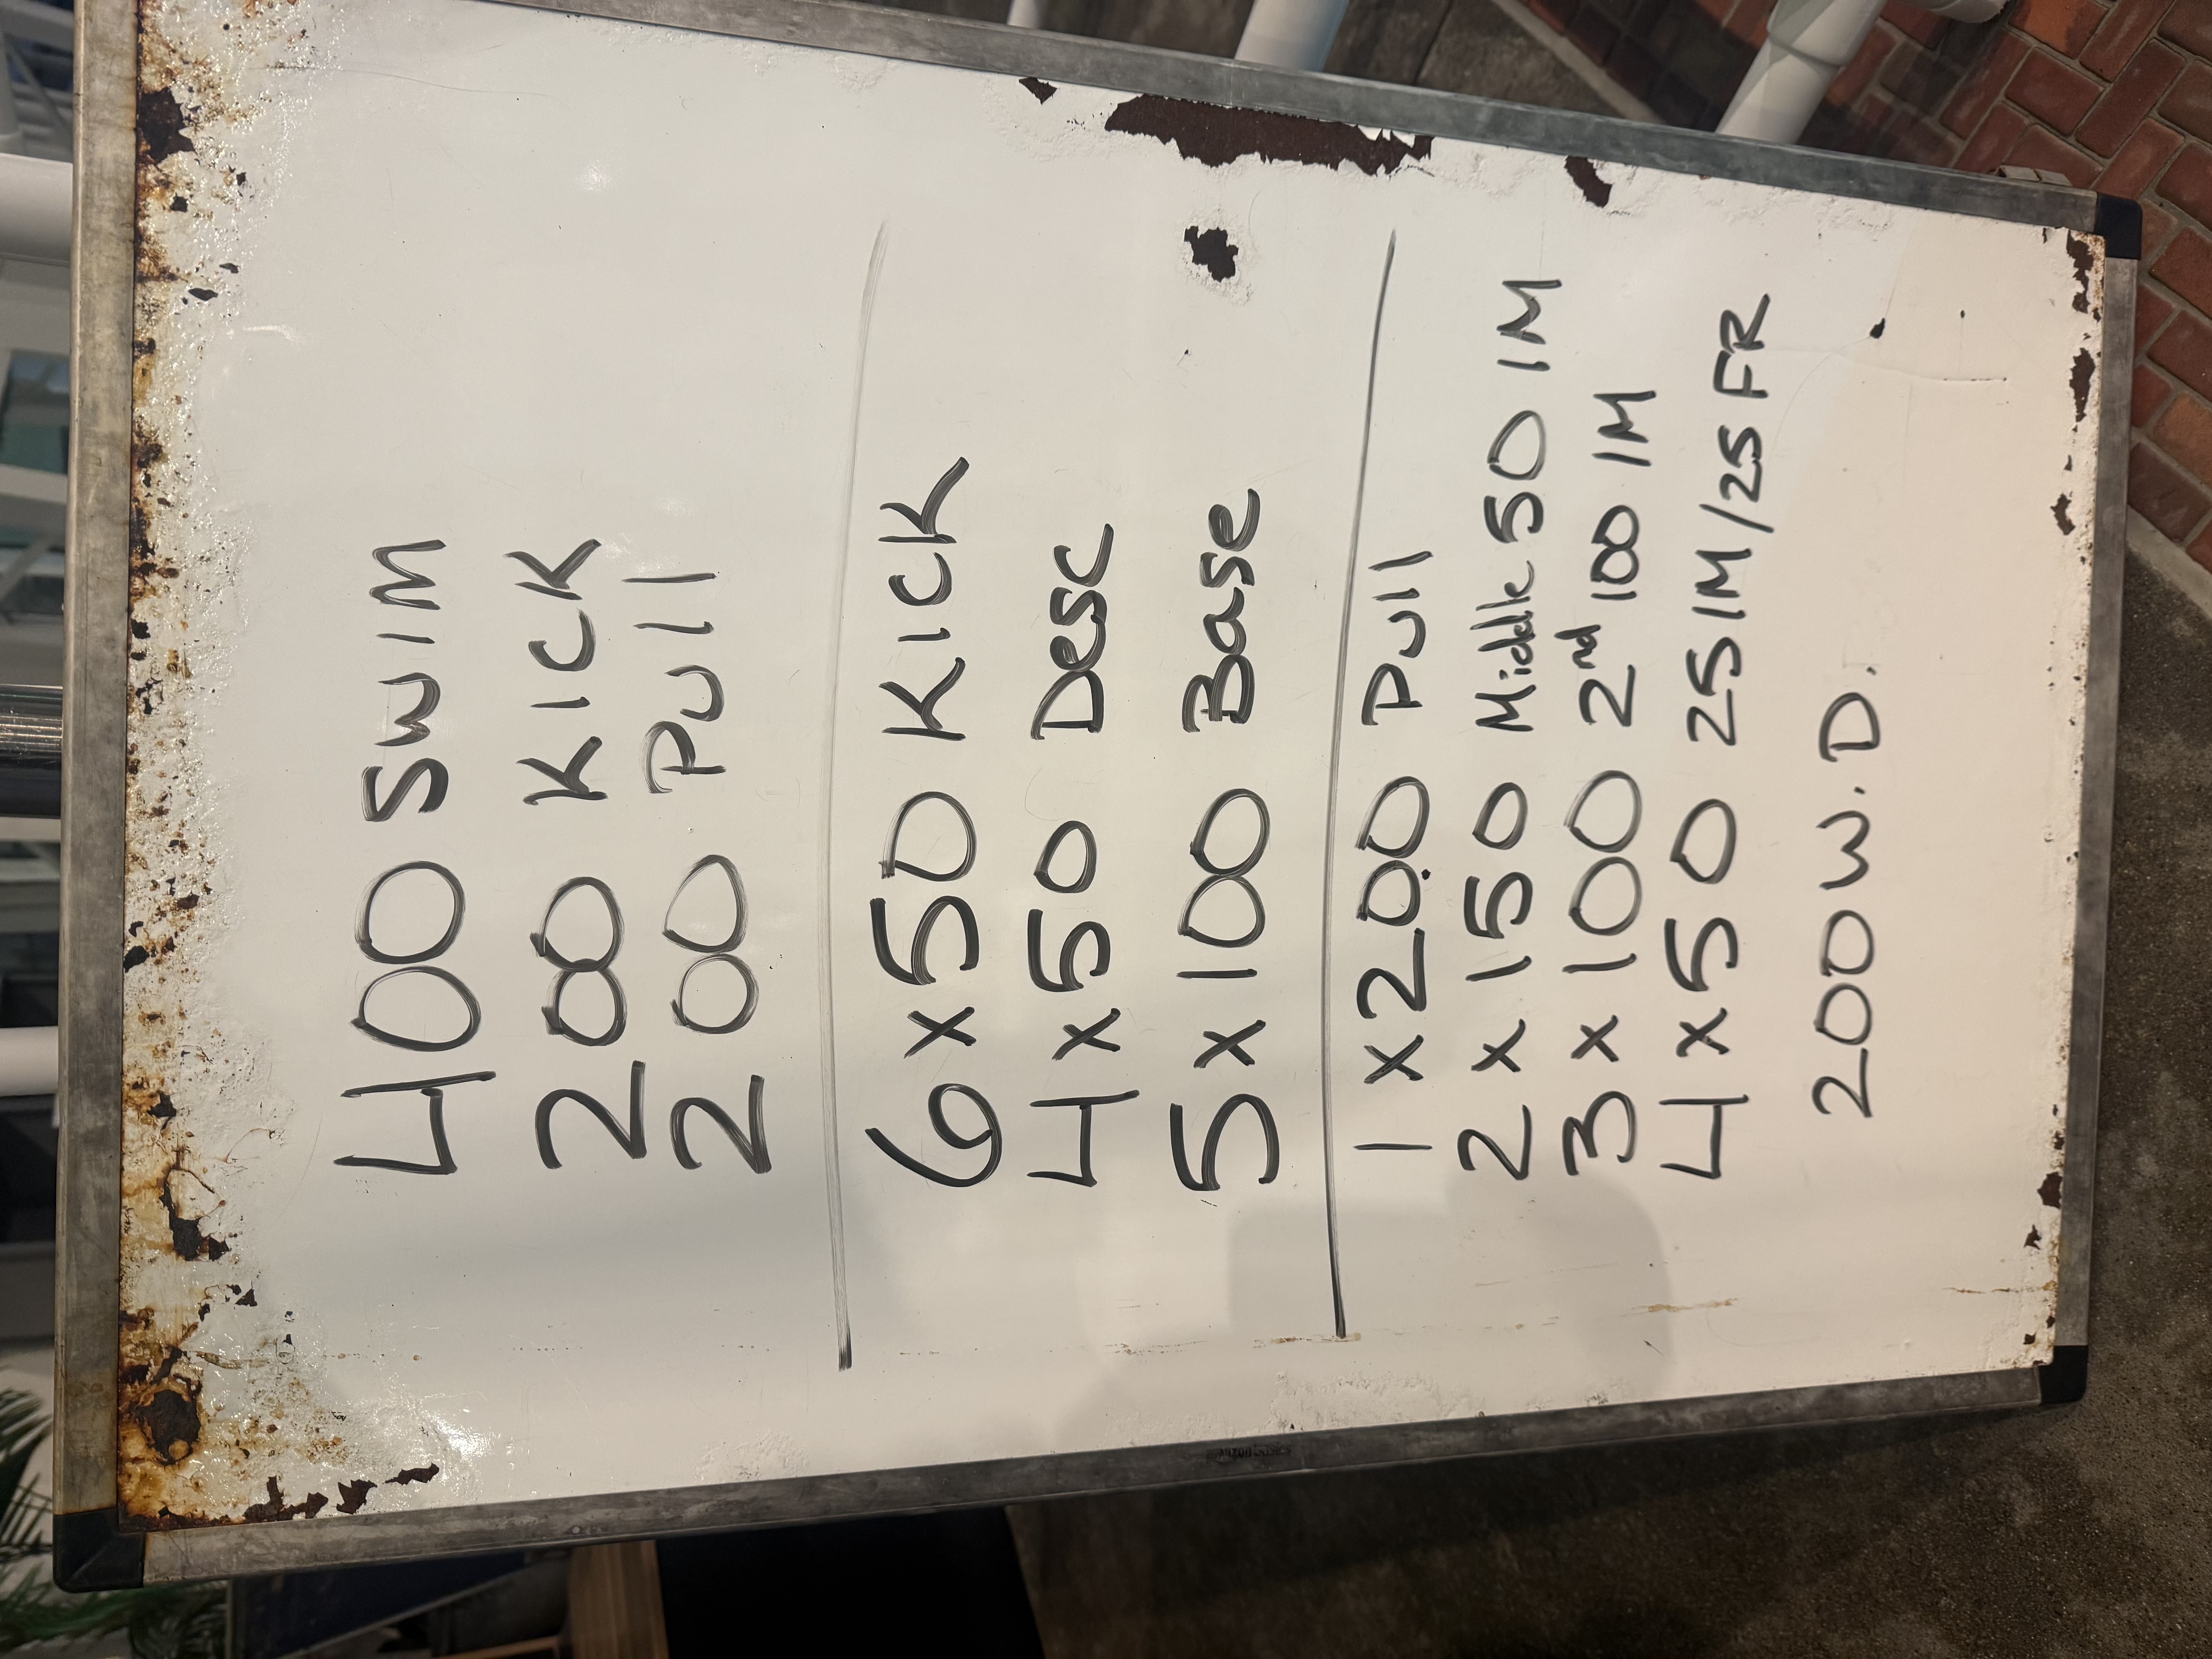 400 SWIM
200 KICK
200 PUll
6 x 50 KICK
4 x 50 Desc
5 x 100 Base
1 x 200 PUll
2 x 150 Middle 50 IM
3 x 100 2nd 100 IM
4 x 50 25 IM/25 FR
200 W.D.